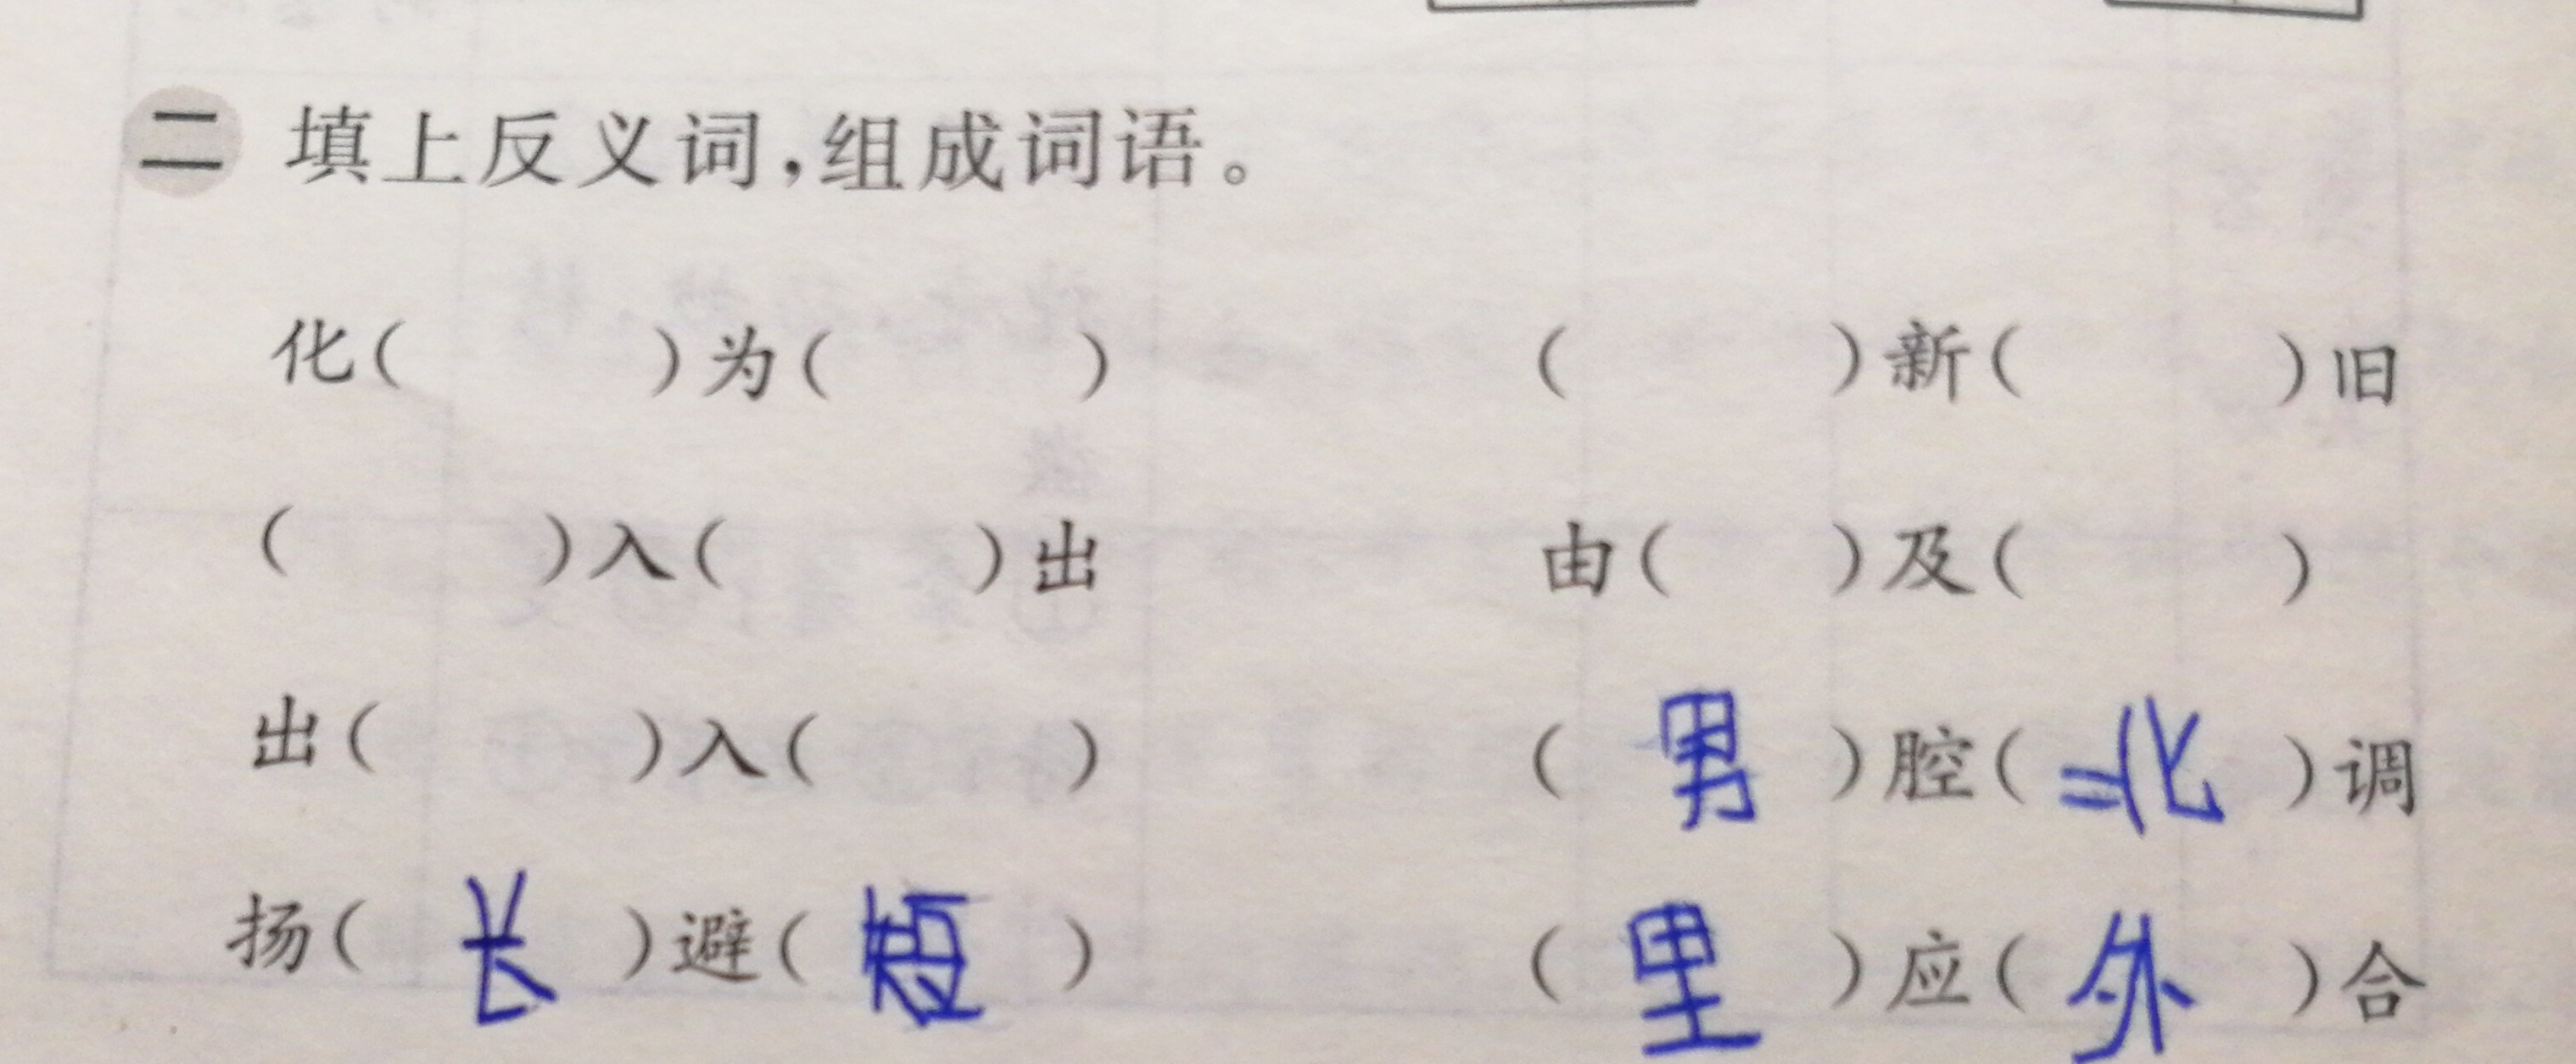 二 填上反义词,组成词语。
化( )为( ) ( )新( )旧
( )入( )出 由( )及( )
出( )入( ) (男)腔(北)调
扬(长)避(短) (里)应(外)合